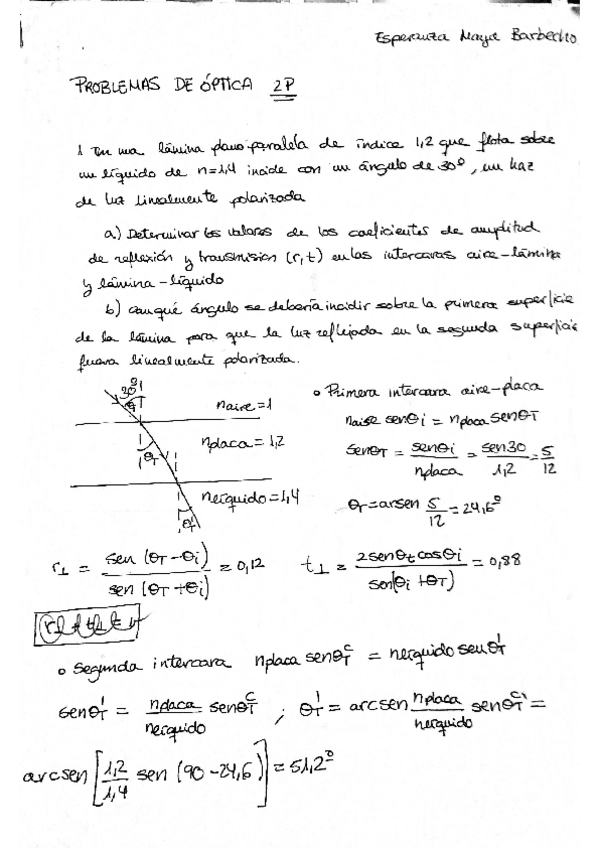 Esperanza Maya Barbecho
PROBLEMAS DE ÓPTICA 2P
1 En una lámina plano paralela de índice 1,2 que flota sobre
un líquido de n=1,4 incide con un ángulo de 30º, un haz
de luz linealmente polarizada
a) Determinar los valores de los coeficientes de amplitud
de reflexión y transmisión (r,t) en las intercaras aire-lámina
y lámina-líquido
b) con qué ángulo se debería incidir sobre la primera superficie
de la lámina para que la luz reflejada en la segunda superficie
fuera linealmente polarizada.
30º
naire=1
nplaca=1,2
θT
nlíquido=1,4
θT'
o Primera intercara aire-placa
naire senθi = nplaca senθT
senθT = senθi / nplaca = sen30 / 1,2 = 5/12
θT = arcsen 5/12 = 24,6º
r⊥ = sen (θT-θi) / sen (θT+θi) = 0,12 t⊥ = 2senθt cosθi / sen(θi+θT) = 0,88
o Segunda intercara nplaca senθTᶜ = nlíquido senθT'
senθT' = nplaca / nlíquido senθTᶜ ; θT' = arcsen nplaca / nlíquido senθTᶜ' =
arcsen [1,2/1,4 sen (90-24,6)] = 51,2º